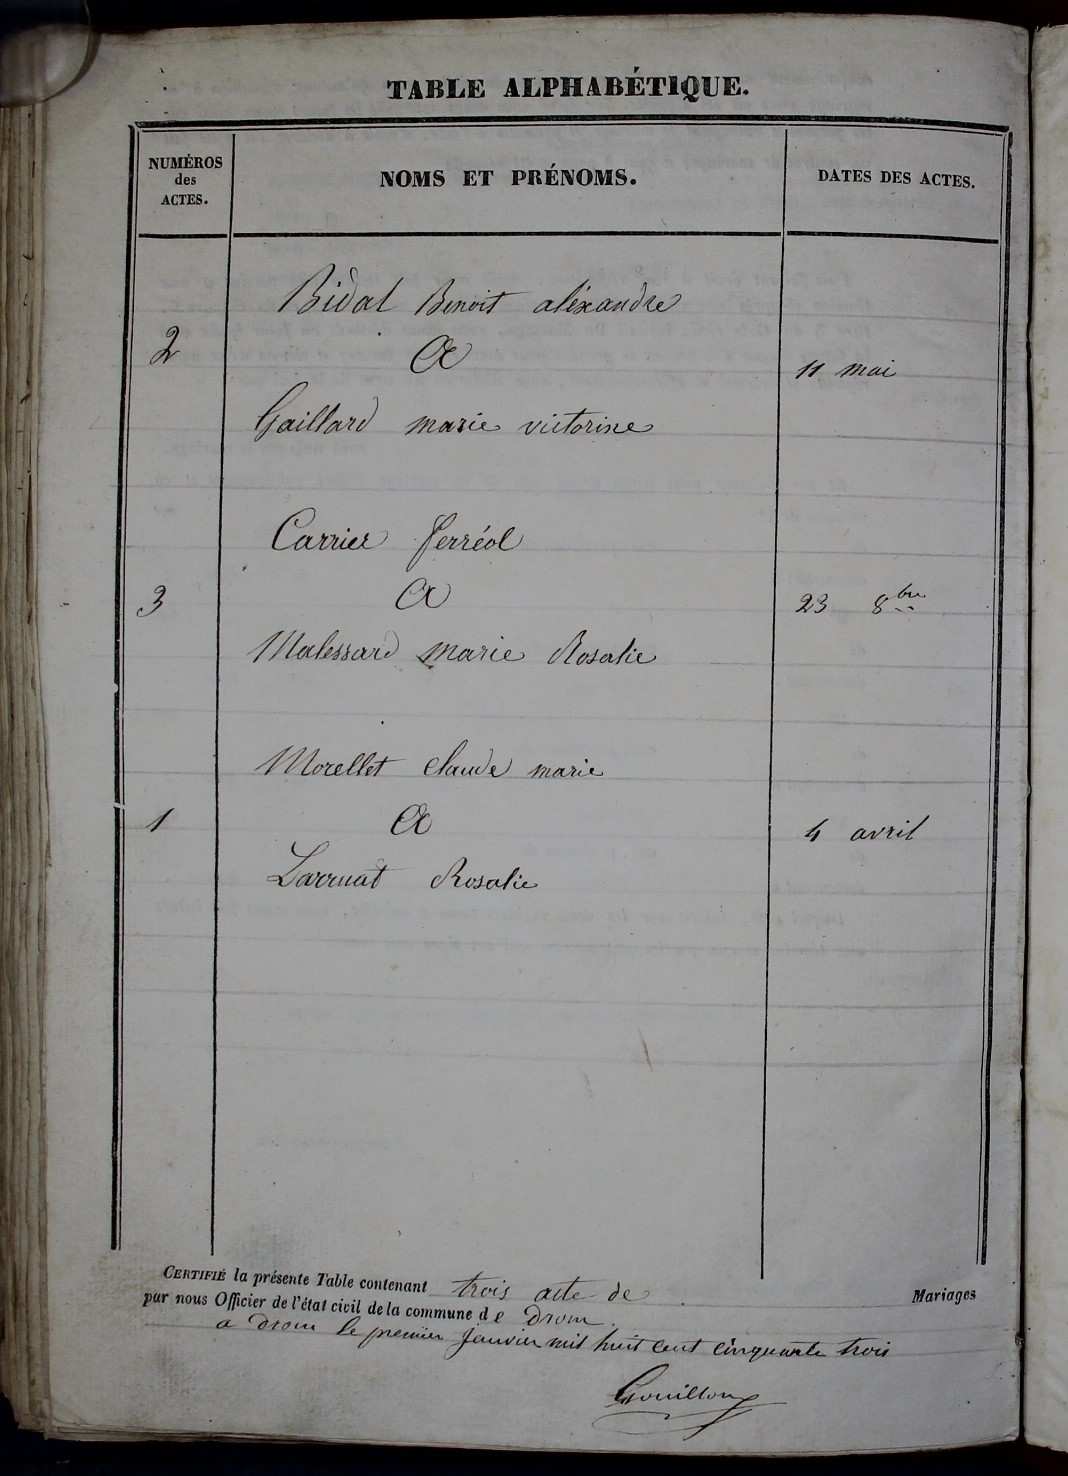 TABLE ALPHABÉTIQUE.
NUMÉROS des ACTES.
NOMS ET PRÉNOMS.
DATES DES ACTES.
Bidal Benoit aléxandre
2 & 11 mai
Gaillard marie victorine
Carrier ferréol
3 & 23 8bre
Malessard marie Rosalie
Morellet claude marie
1 & 4 avril
Rosalie
CERTIFIÉ la présente Table contenant trois acte de Mariages
par nous Officier de l'état civil de la commune de Drom.
a Drom le premier Janvier mil huit cent cinquante trois
Gouilloux